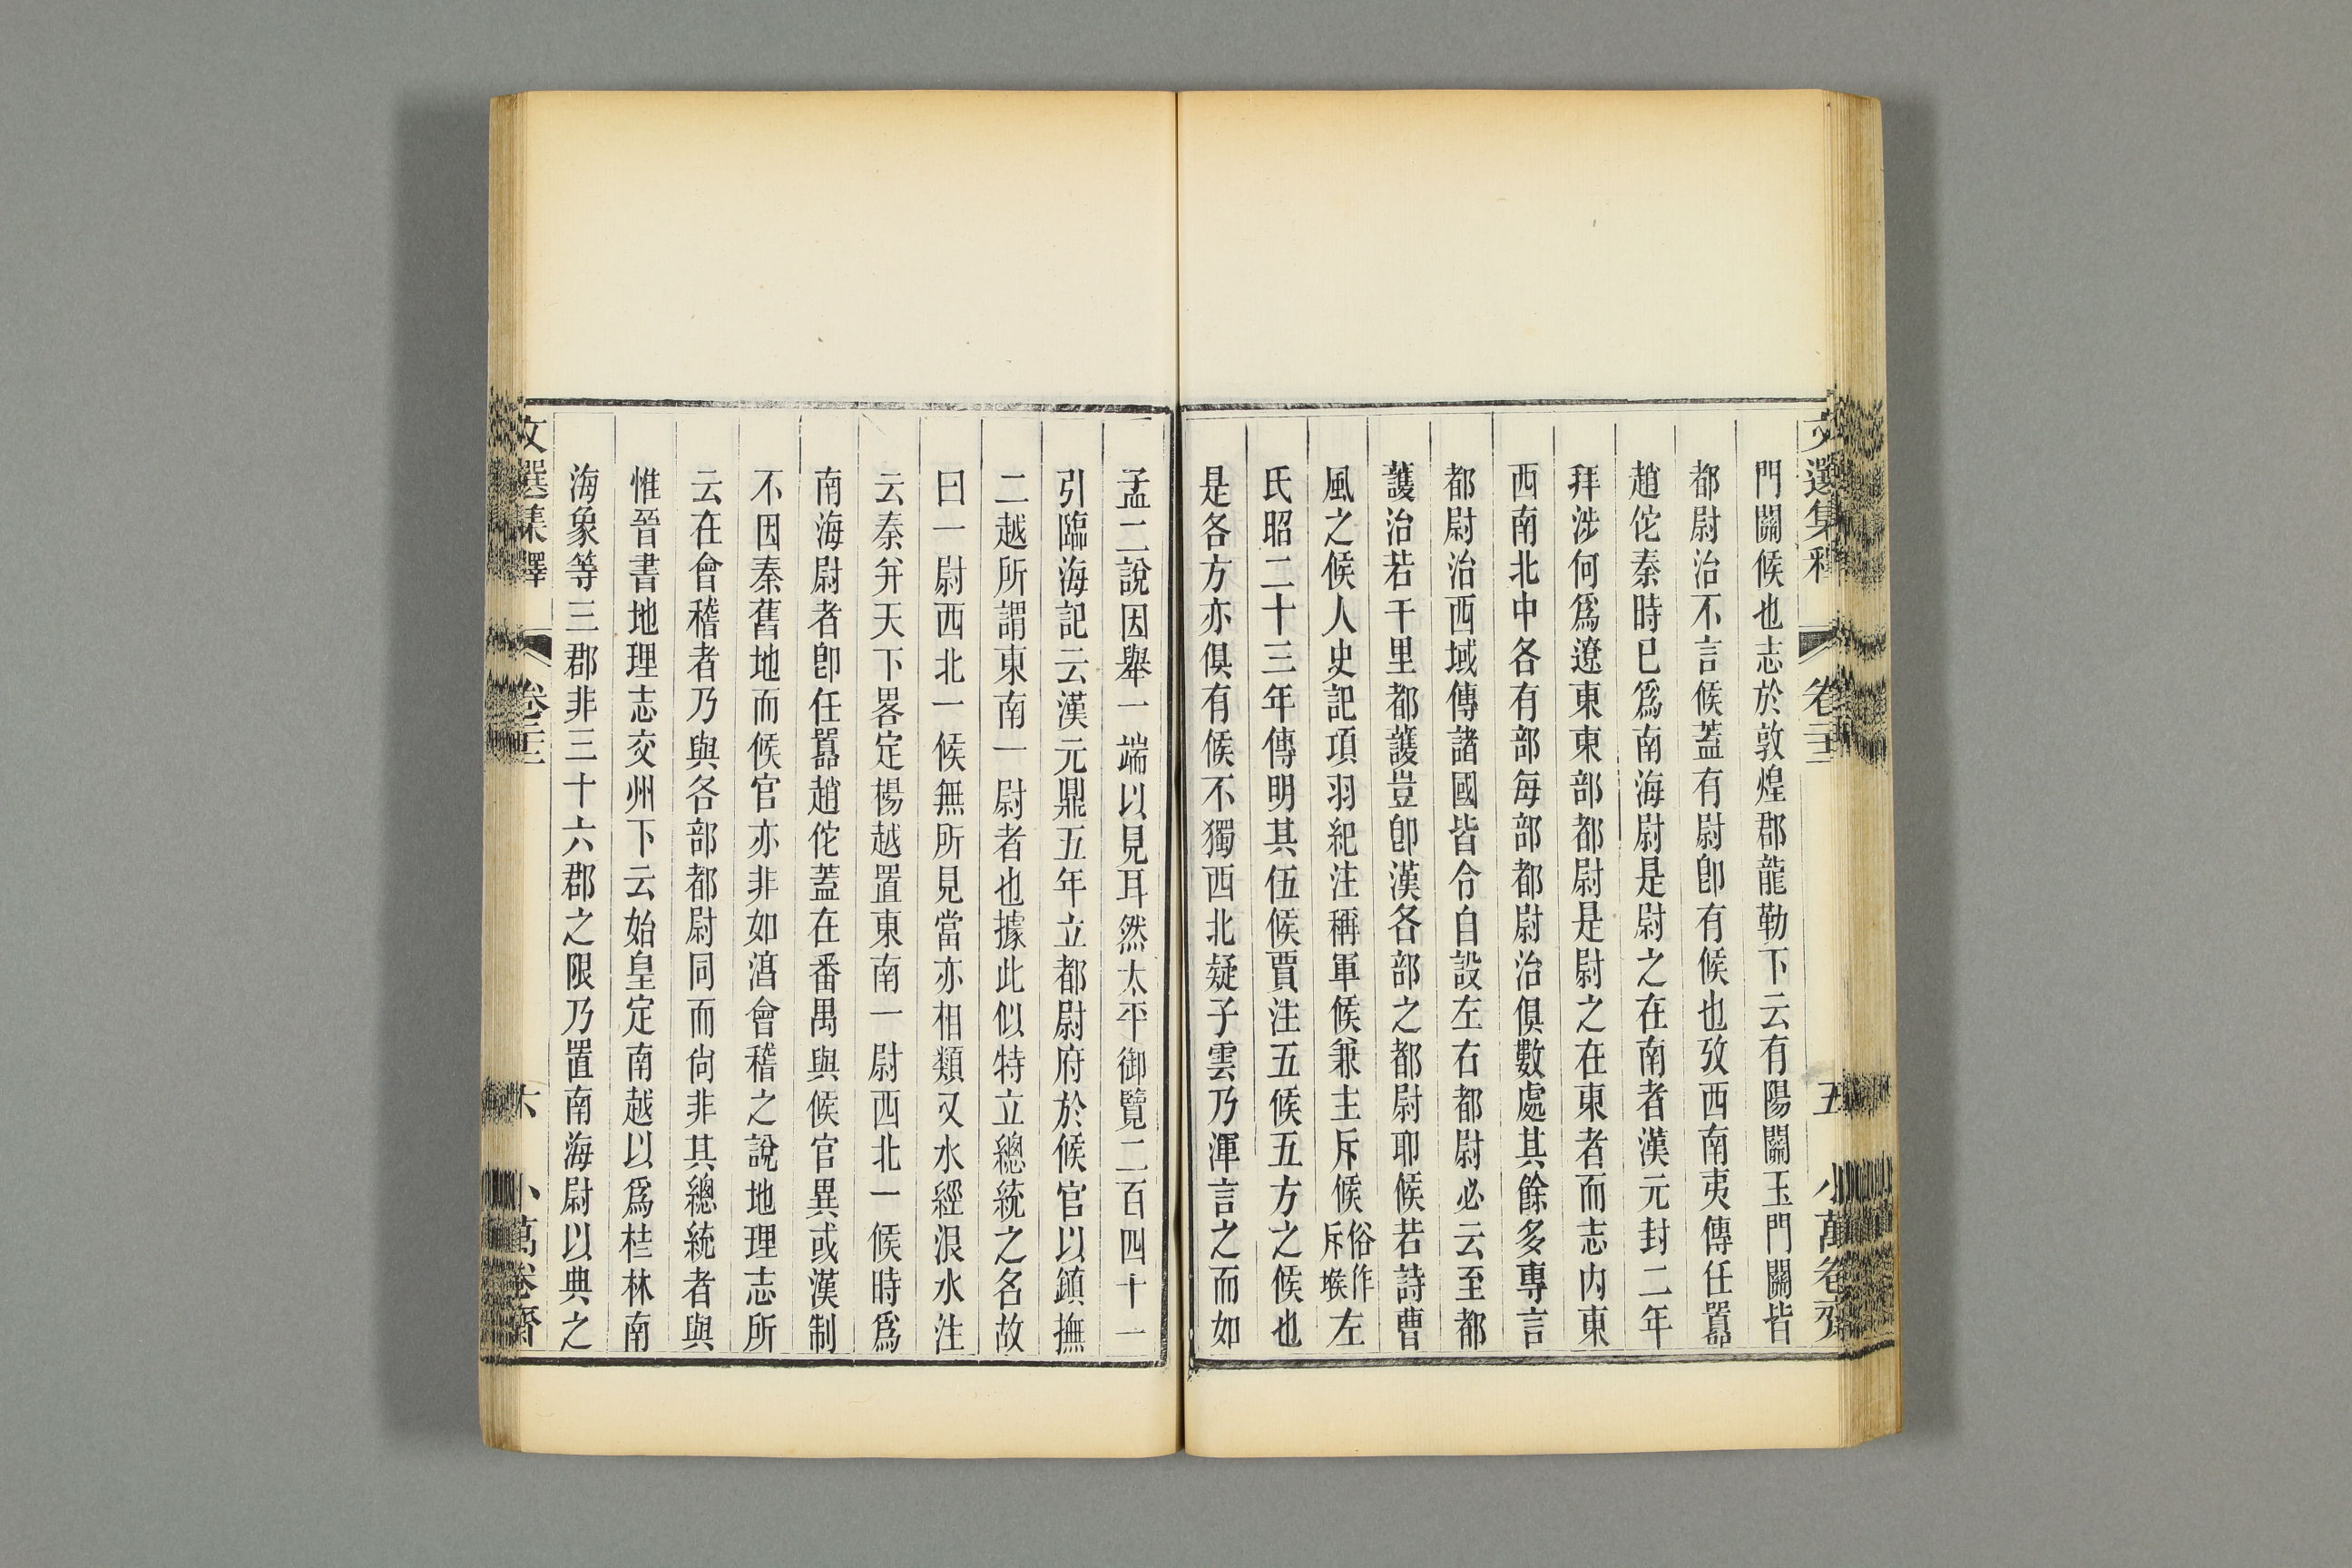 文選集釋 卷二十三 五 小萬卷齋
門關候也志於敦煌郡龍勒下云有陽關玉門關皆
都尉治不言候蓋有尉卽有候也攷西南夷傳任囂
趙佗秦時已爲南海尉是尉之在南者漢元封二年
拜涉何爲遼東東部都尉是尉之在東者而志内東
西南北中各有部每部都尉治俱數處其餘多專言
都尉治西域傳諸國皆令自設左右都尉必云至都
護治若干里都護豈卽漢各部之都尉耶候若詩曹
風之候人史記項羽紀注稱軍候兼主斥候俗作斥堠左
氏昭二十三年傳明其伍候賈注五候五方之候也
是各方亦俱有候不獨西北疑子雲乃渾言之而如
孟二說因舉一端以見耳然太平御覽二百四十一
引臨海記云漢元鼎五年立都尉府於候官以鎮撫
二越所謂東南一尉者也據此似特立總統之名故
曰一尉西北一候無所見當亦相類又水經泿水注
云秦幷天下畧定楊越置東南一尉西北一候時爲
南海尉者卽任囂趙佗蓋在番禺與候官異或漢制
不因秦舊地而候官亦非如㴠會稽之說地理志所
云在會稽者乃與各部都尉同而尙非其總統者與
惟晉書地理志交州下云始皇定南越以爲桂林南
海象等三郡非三十六郡之限乃置南海尉以典之
文選集釋 卷二十三 六 小萬卷齋